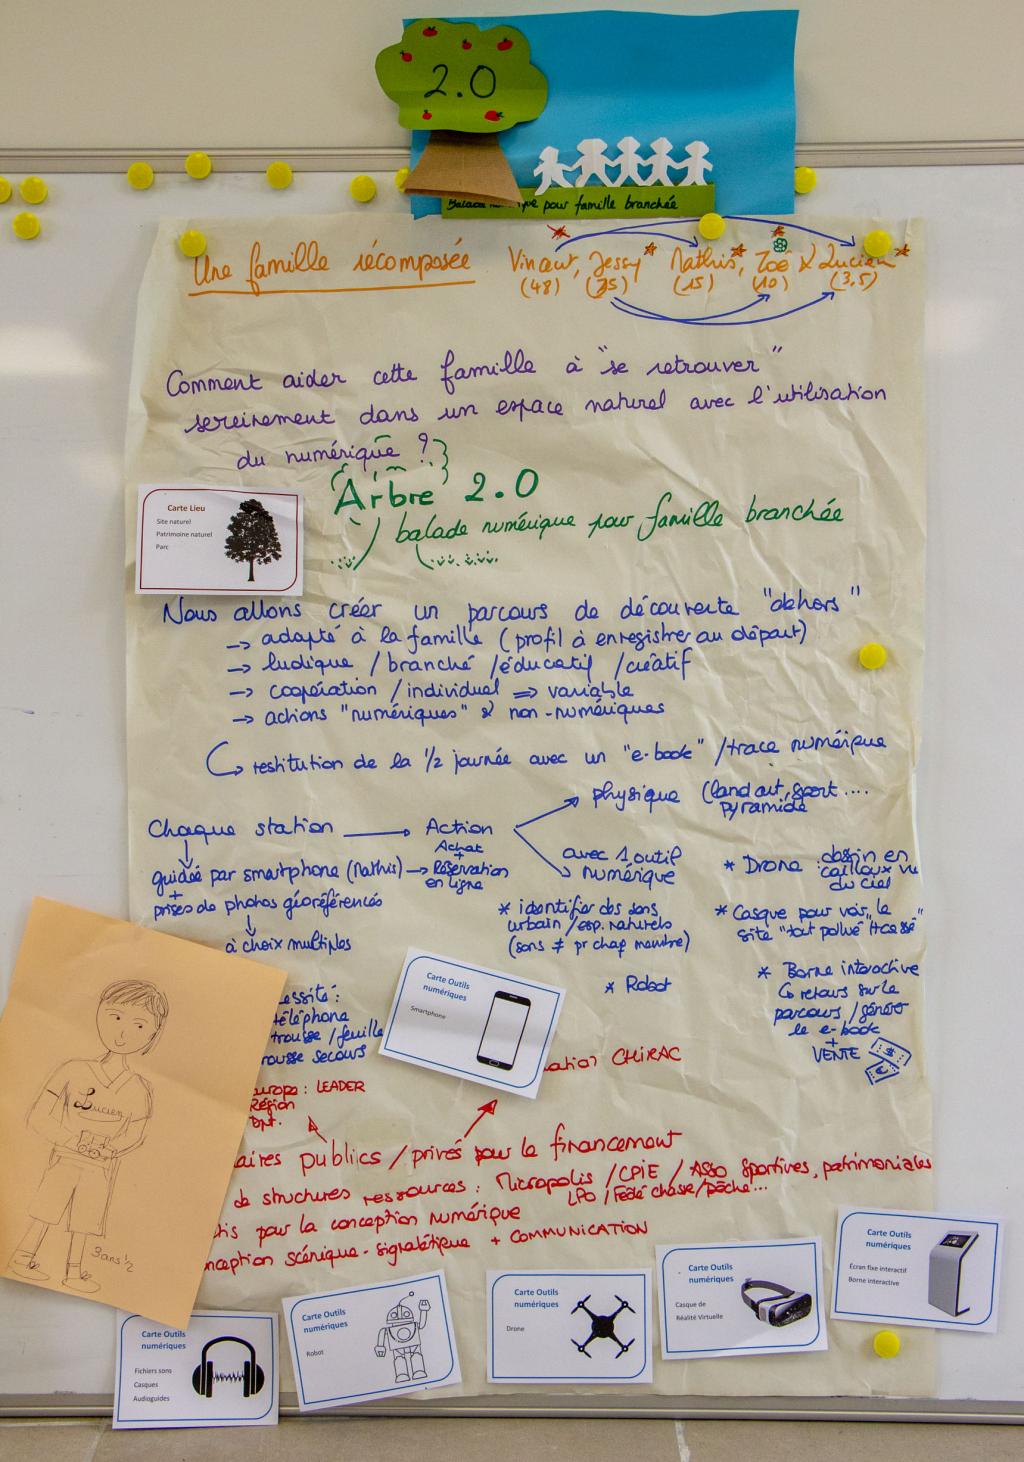 2.0
Balade numérique pour famille branchée
Une famille récomposée
Vincent, Jessy Mathis, Zoé & Lucien
(48) (35) (15) (10) (3.5)
Comment aider cette famille à "se retrouver"
sereinement dans un espace naturel avec l'utilisation
du numérique ?
Arbre 2.0
balade numérique pour famille branchée
Carte Lieu
Site naturel
Patrimoine naturel
Parc
Nous allons créer un parcours de découverte "dehors"
→ adapté à la famille (profil à enregistrer au départ)
→ ludique / branché / éducatif / créatif
→ coopération / individuel ⇒ variable
→ actions "numériques" & non-numériques
restitution de la 1/2 journée avec un "e-book" / trace numérique
physique (land art, sport ....
pyramide
Chaque station → Action
guidée par smartphone (Mathis) → Achat
+
Réservation
en ligne
+
prises de photos géoréférencés
à choix multiples
avec 1 outil
numérique
* identifier des sons
urbain / esp. naturels
(sons ≠ pr chap membre)
* Robot
* Drone : dessin en
cailloux vu
du ciel
* Casque pour voir le
site "tout pollué"
* Borne interactive
retours sur le
parcours / génère
le e-book
+
VENTE
$
€
essité :
téléphone
trousse / feuille
rousse secours
Carte Outils
numériques
Smartphone
ation CHIRAC
urope : LEADER
Région
Dpt.
aires publics / privés pour le financement
de structures ressources : Micropolis / CPIE / Asso sportives, patrimoniales
LPO / Fédé chasse / pêche...
tis pour la conception numérique
nception scénique - signalétique + COMMUNICATION
Lucien
3 ans 1/2
Carte Outils
numériques
Fichiers sons
Casques
Audioguides
Carte Outils
numériques
Robot
Carte Outils
numériques
Drone
Carte Outils
numériques
Casque de
Réalité Virtuelle
Carte Outils
numériques
Écran fixe interactif
Borne interactive